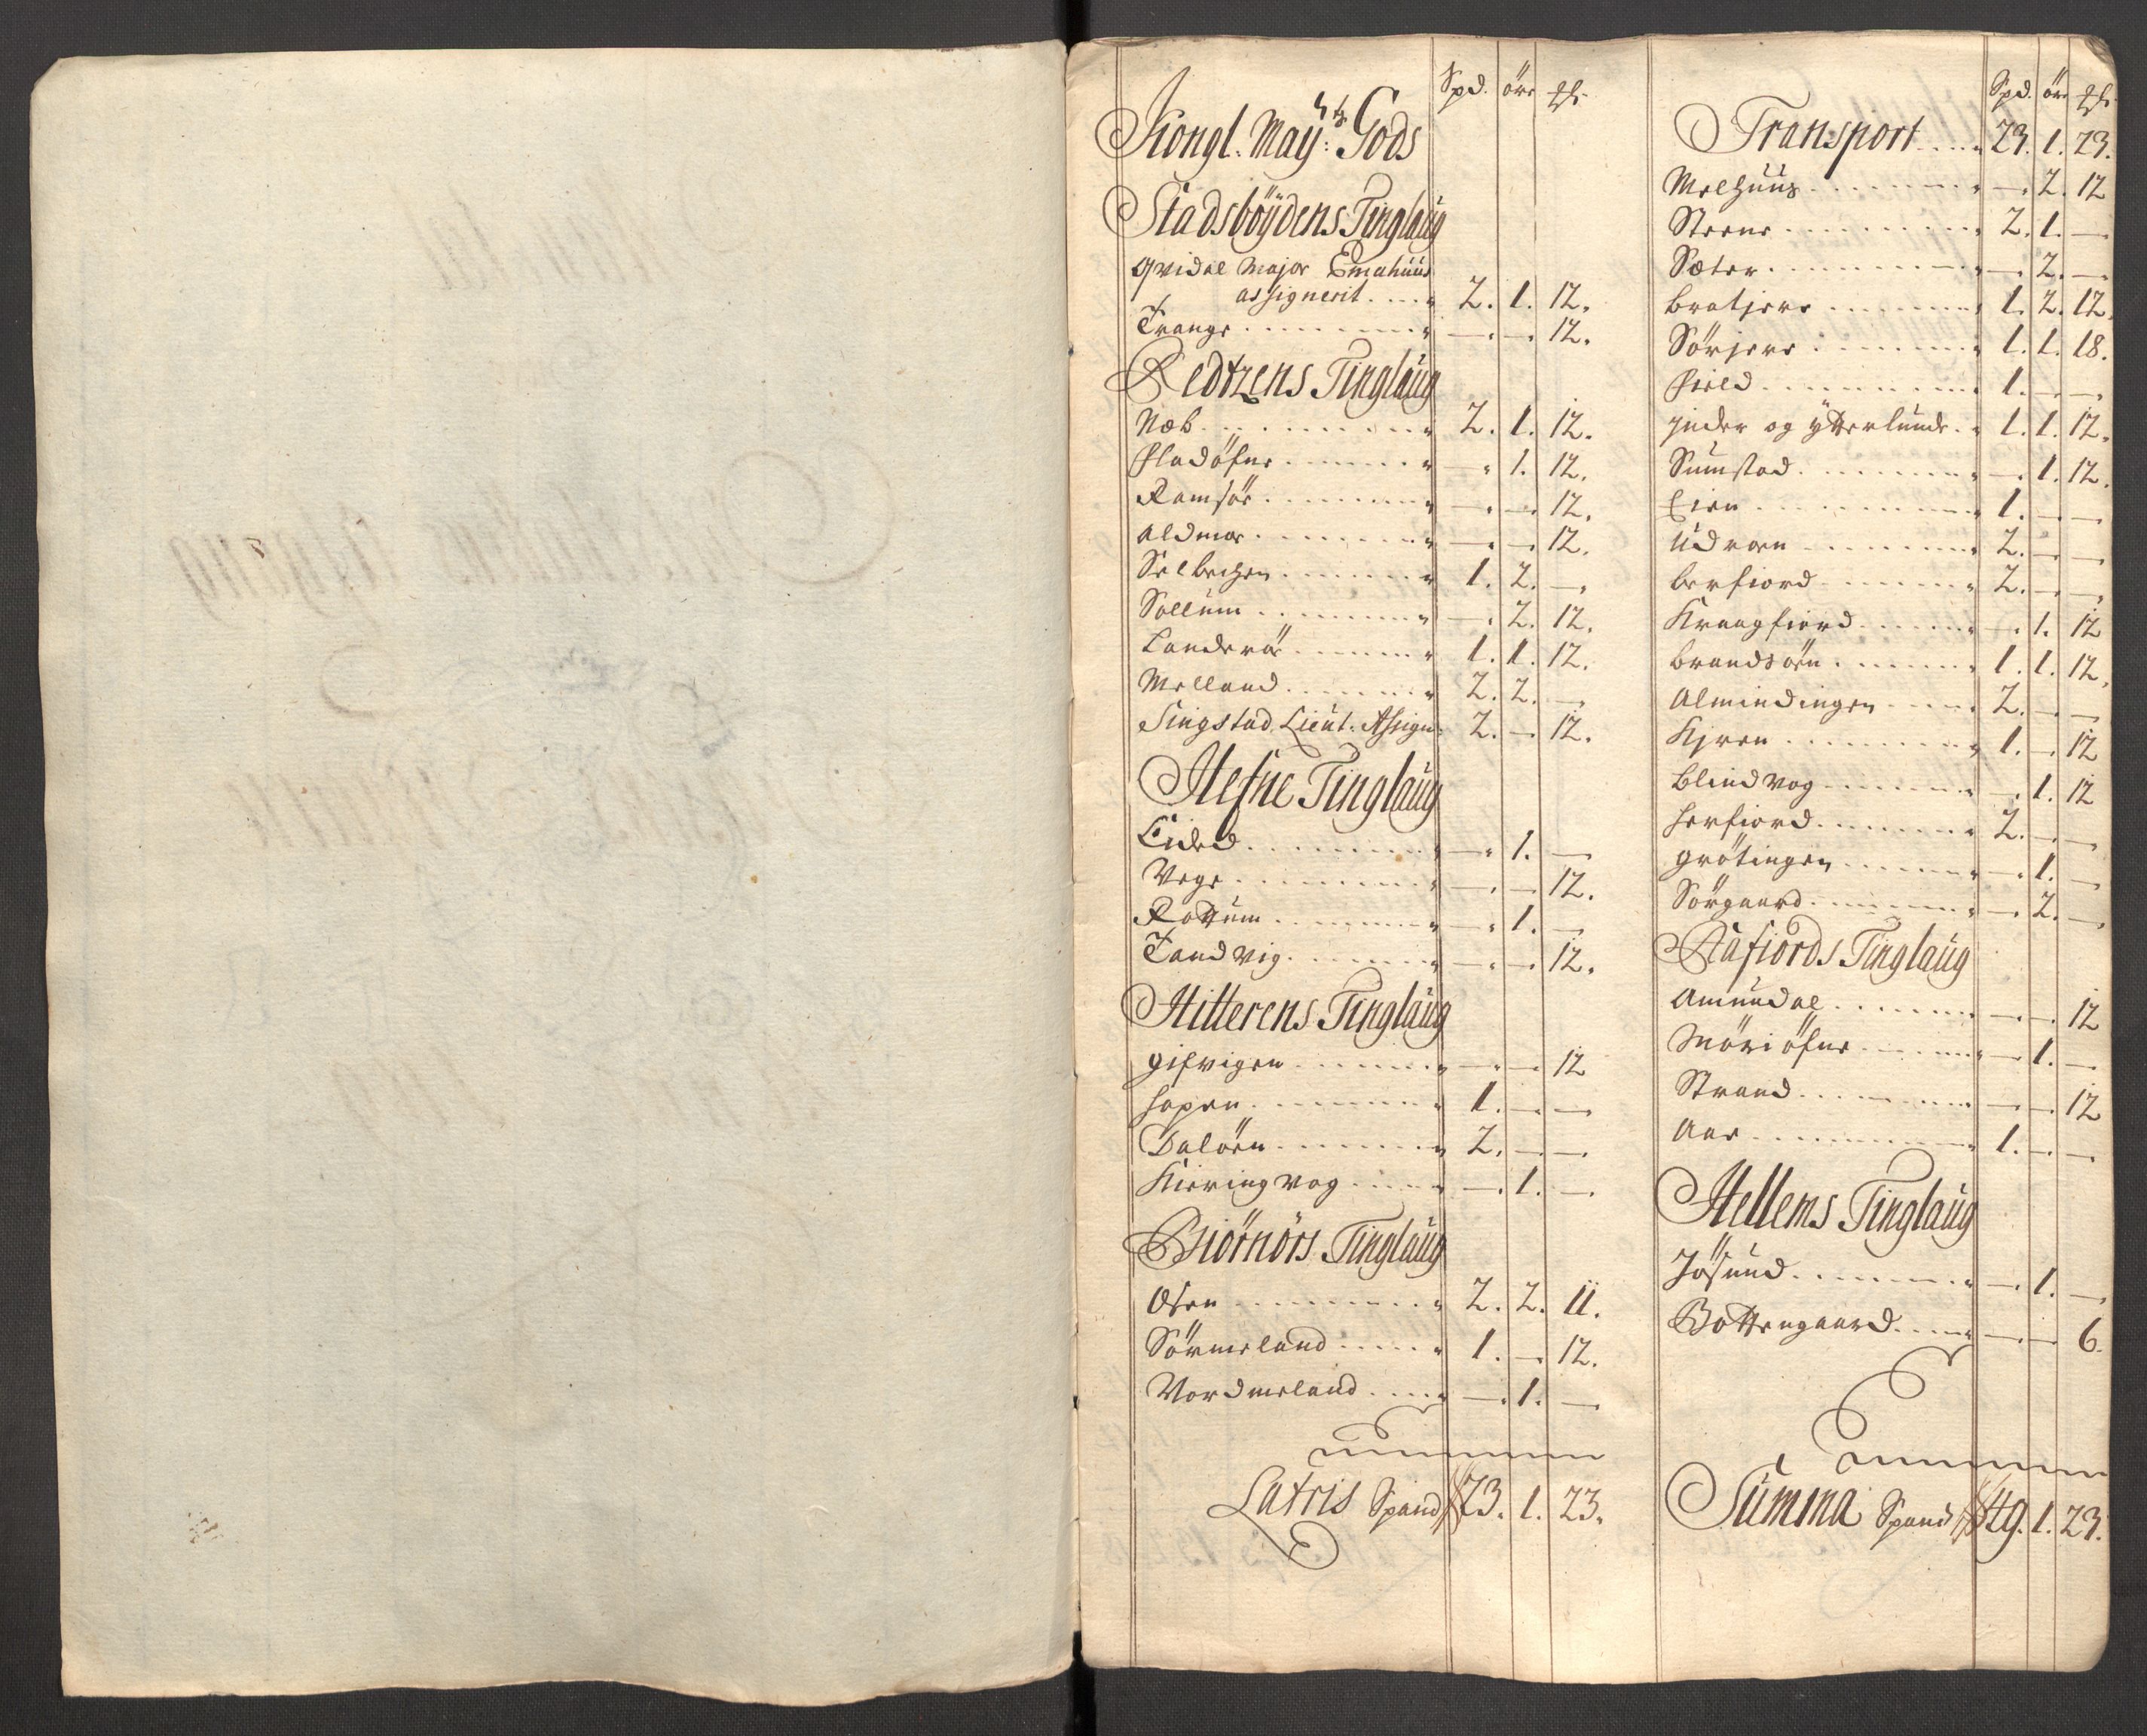 Spd. öre
Kongl. May:tz Gods
Stadsböÿdens Tinglaug
Qvidal Major Emahuus
assignerit 2. 1. 12.
Trange — — 12.
Redtzens Tinglaug
Næb 2. 1. 12.
Fladöfne — 1. 12.
Ramsöe — — 12.
Aldmor — — 12.
Selbechen 1. 2. —
Sollum — 2. 12.
Landsröe 1. 1. 12.
Melland 2. 2. —
Singstad Lieut: Assign: 2. — 12.
Hefne Tinglaug
Eided — 1. —
Vege — — 12.
Rottum — 1. —
Tandvig — — 12.
Hitterens Tinglaug
Gisvigen — — 12
Hopen 1. — —
Dalöen 2. — —
Kieringvog — 1. —
Biörnörs Tinglaug
Osen 2. 2. 11.
Sörmeland 1. — 12.
Nordmeland — 1. —
Latris Spand 23. 1. 23.
Spd. öre
Transport 23. 1. 23.
Melhuus — 2. 12
Steene 2. 1. —
Sæter — 2. —
Bratjere 1. 2. 12.
Sörjere 1. 1. 18.
Field 1. — —
Inder og Ytterlunde 1. 1. 12.
Sumstad — 1. 12.
Eien 1. — —
Udroen 2. — —
Berfiord 2. — —
Kraagfiord — 1. 12
Brandsöen 1. 1. 12.
Almindingen 2. — —
Kjren 1. — 12
Blindvog — 1. 12
Herfiord 2. — —
Grötingen — 1. —
Sörgaard — 2. —
Aafiords Tinglaug
Amundal — — 12
Möriöfne — 1. —
Strand — — 12
Aae 1. — —
Hellems Tinglaug
Jösund — 1. —
Bottengaard — — 6.
Summa Spand 49. 1. 23.